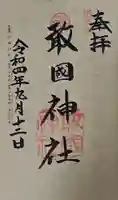 奉拝
敢國神社
令和四年九月十二日